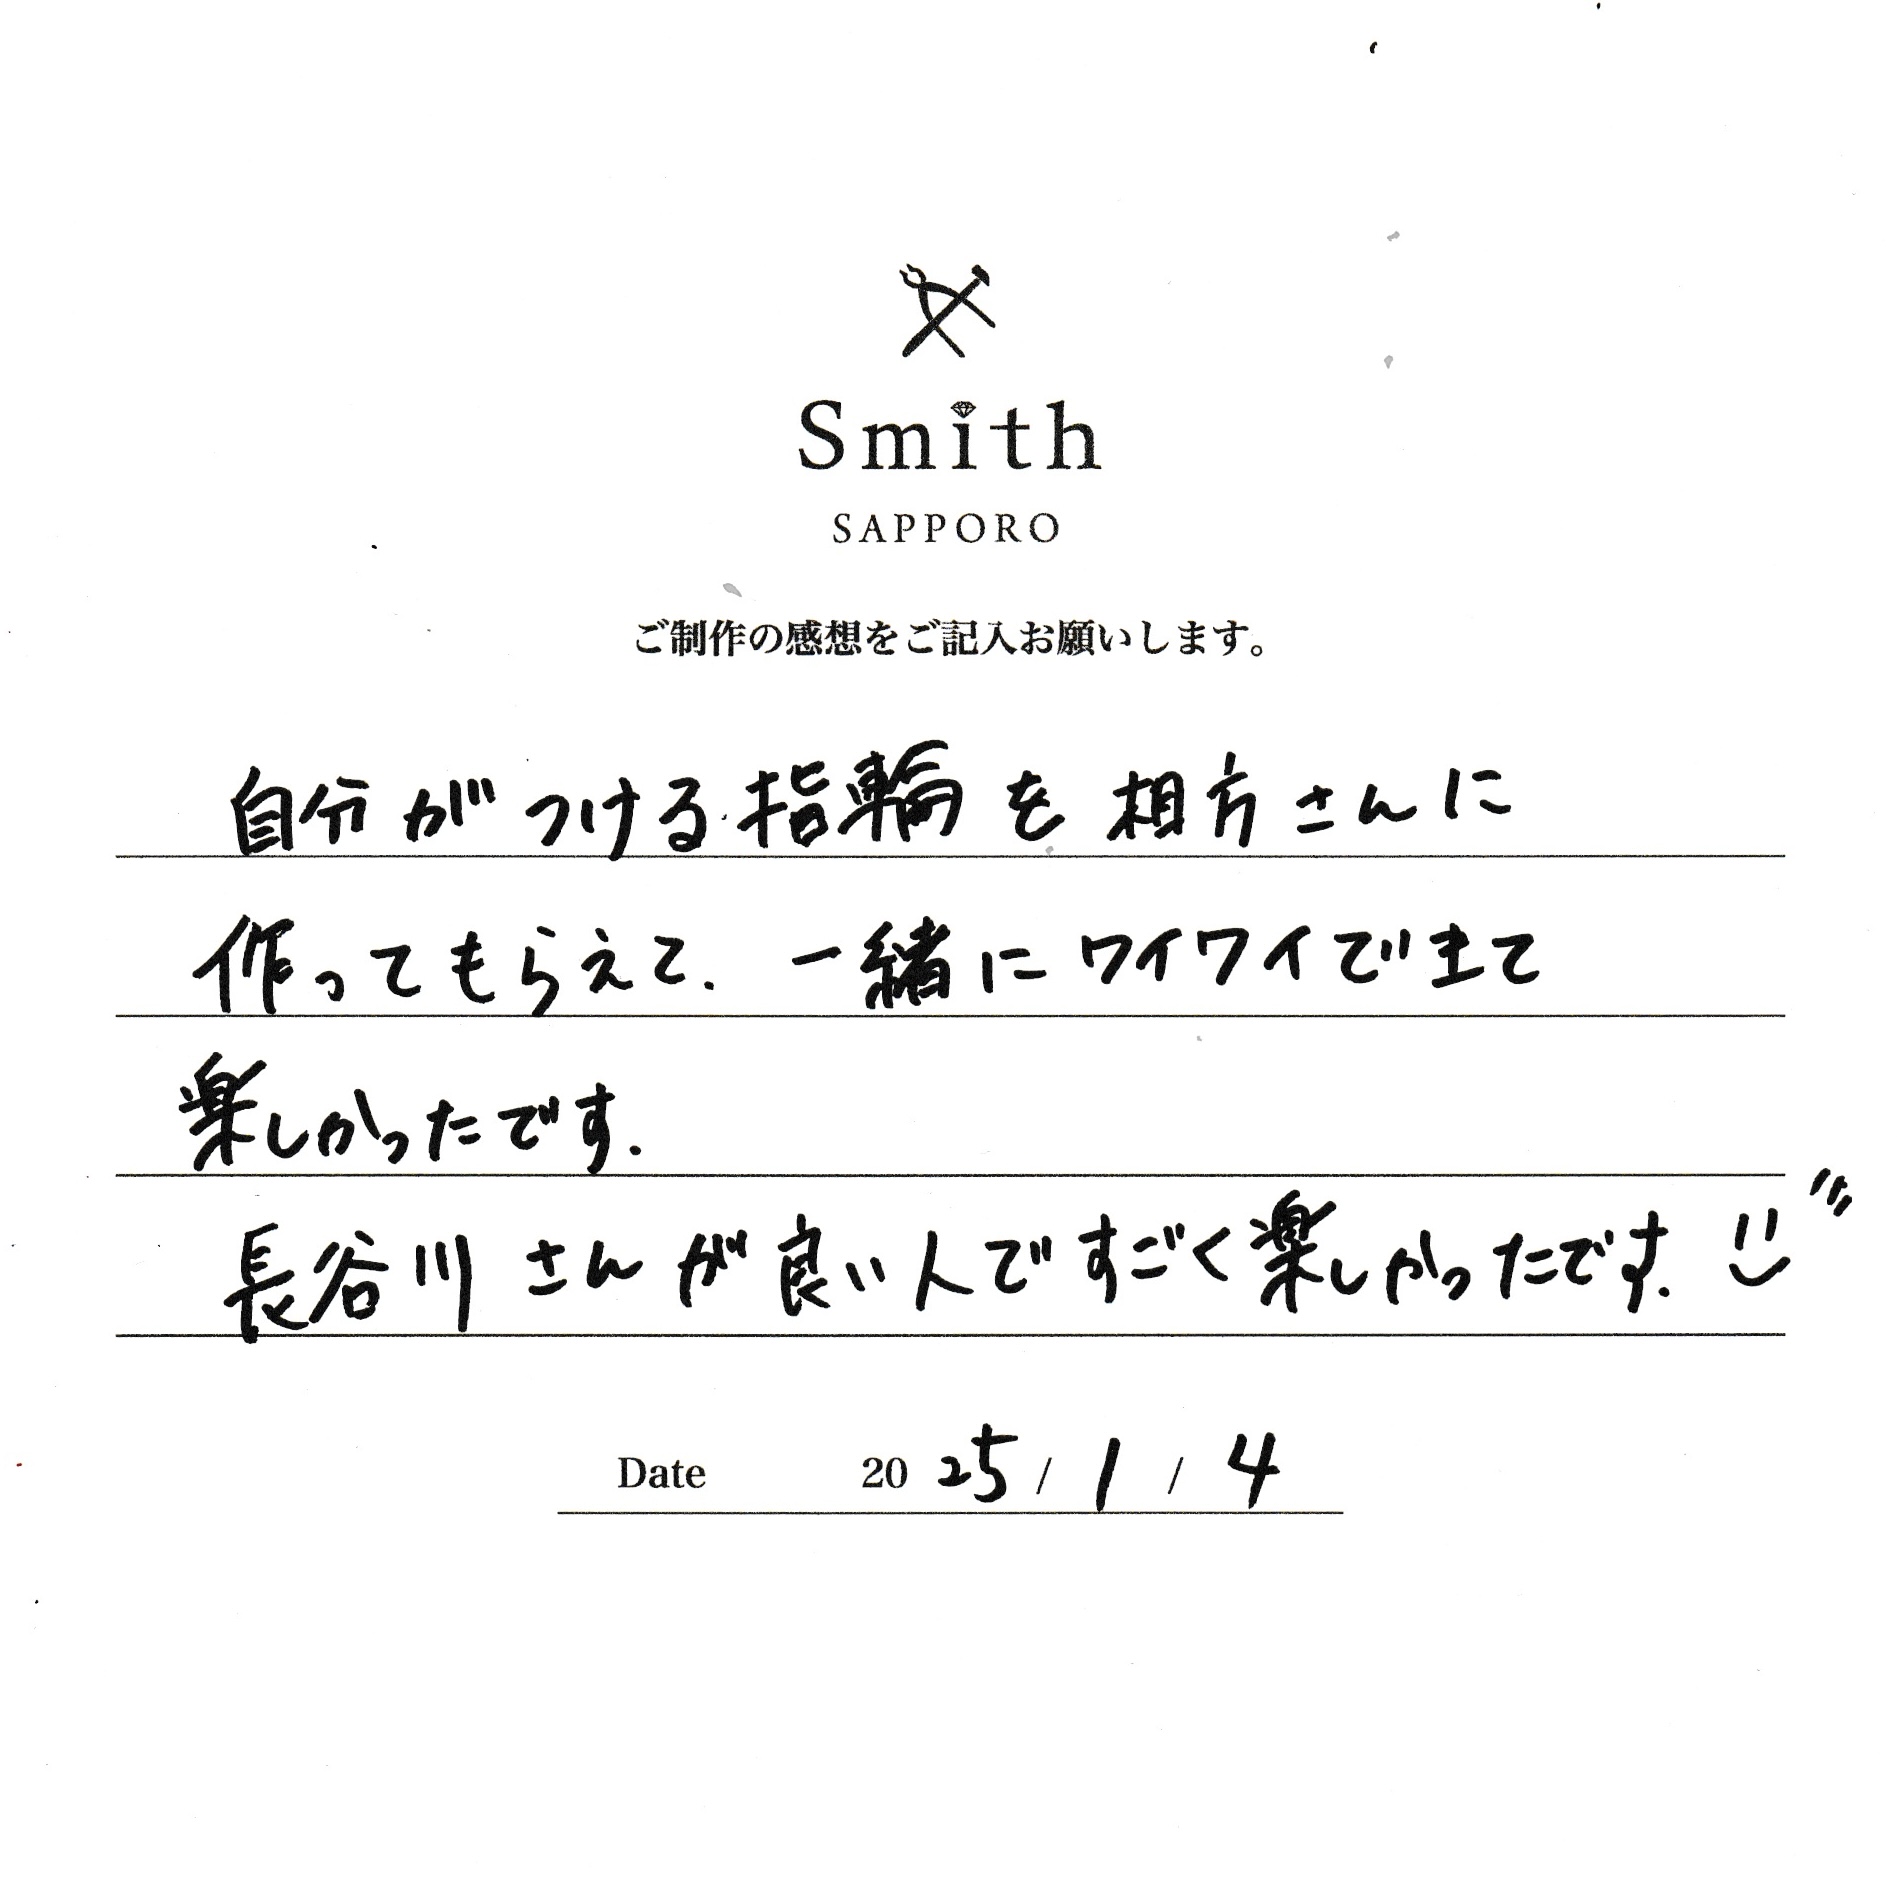 Smith
SAPPORO
ご制作の感想をご記入お願いします。
自分がつける指輪を相方さんに
作ってもらえて. 一緒にワイワイできて
楽しかったです.
長谷川さんが良い人ですごく楽しかったです.
Date 2025/1/4